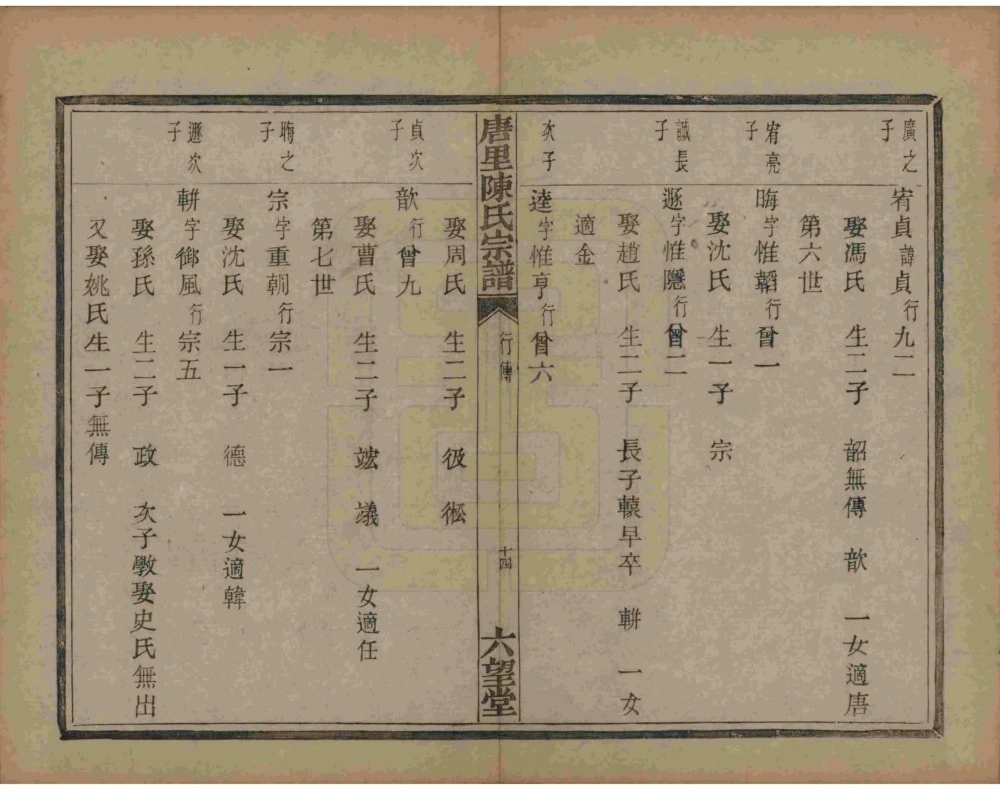 廣之子
宥貞諱貞行九二
娶馮氏 生二子 韶無傳 歆 一女適唐
第六世
宥亮子
晦字惟韜行曾一
娶沈氏 生一子 宗
誠長子
遜字惟隱行曾二
娶趙氏 生二子 長子轅早卒 輧 一女
適金
次子
逵字惟亨行曾六
唐里陳氏宗譜 行傳 十四 六望堂
娶周氏 生二子 彶 彸
貞次子
歆行曾九
娶曹氏 生二子 竑 議 一女適任
第七世
晦之子
宗字重朝行宗一
娶沈氏 生一子 德 一女適韓
遜次子
輧字御風行宗五
娶孫氏 生二子 政 次子斆娶史氏無出
又娶姚氏生一子無傳